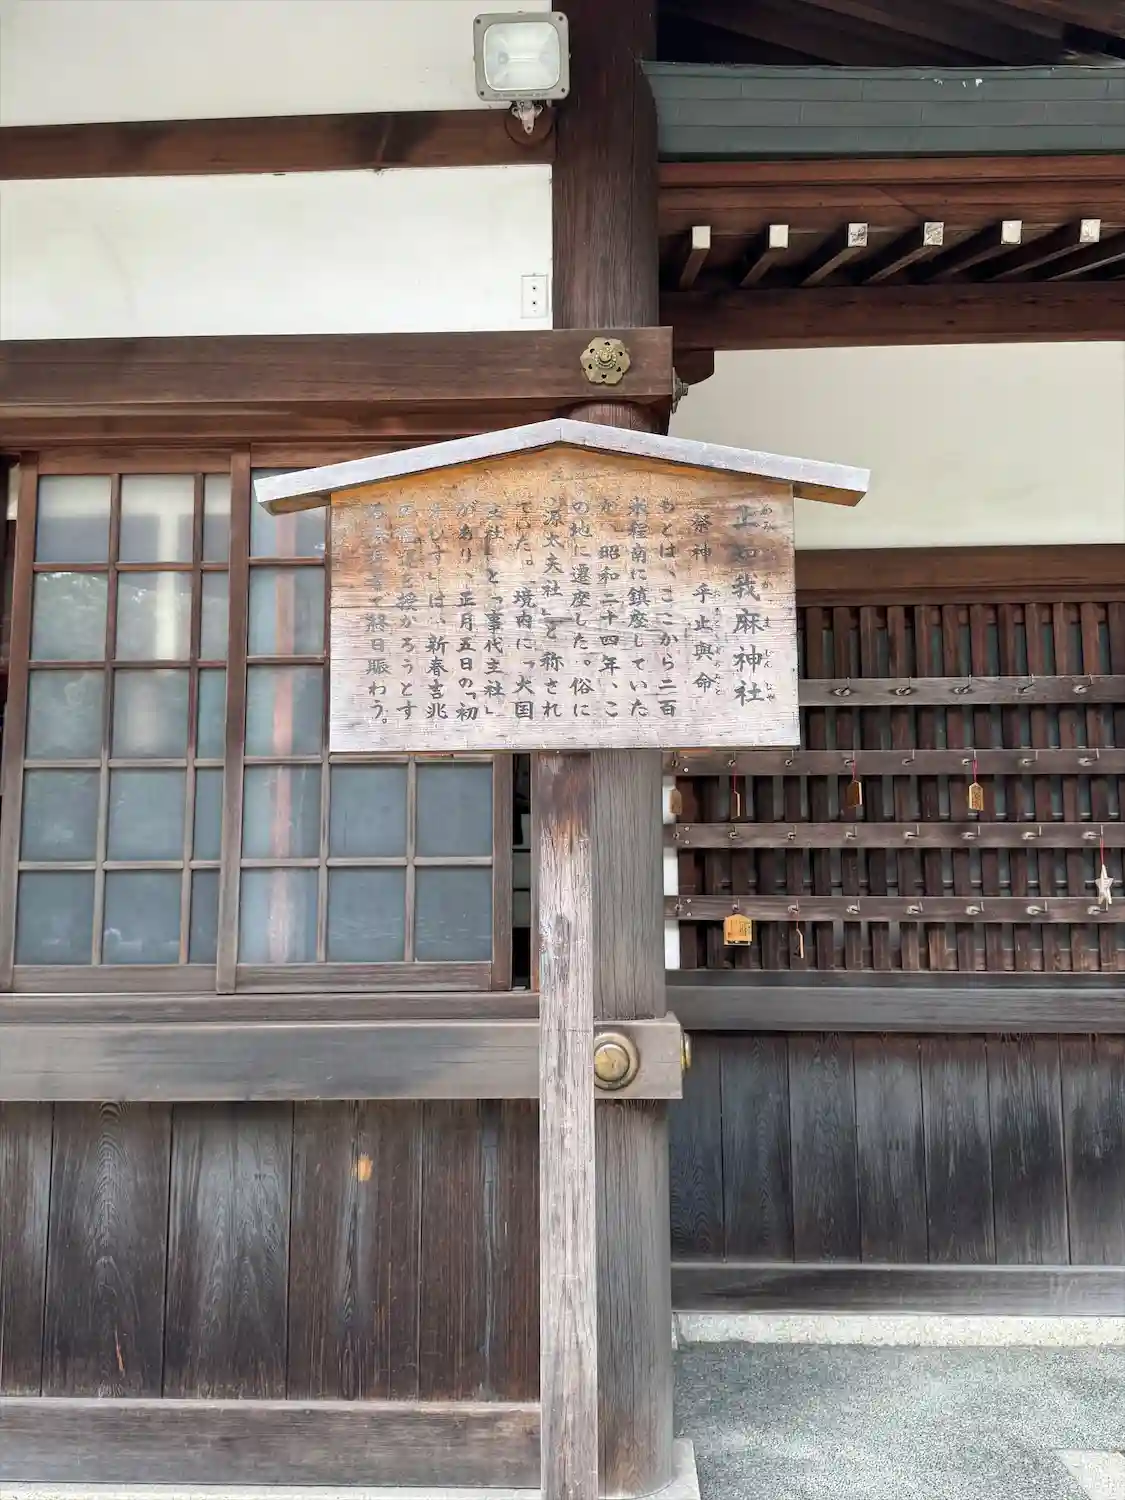 上知我麻神社
かみ か ま じんじゃ
祭神 乎止與命
おとよのみこと
もとは、ここから二百
米程南に鎮座していた
が、昭和二十四年、こ
の地に遷座した。俗に
「源太夫社」と称され
ていた。境内に「大国
主社」と「事代主社」
があり、正月五日の「初
えびす」は、新春吉兆
を授かろうとす
で終日賑わう。